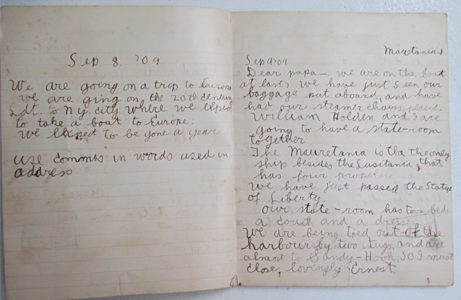 Sep 8. '09
We are going on a trip to Europe
we are going on the 20th century
Ldt. to N.y. city where we expect
to take a boat to Europe.
we expect to be gone a year
use commas in words used in
address
Mauretania
Sep 9 '09
Dear papa— we are on the boat
at last, We have just seen our
baggage put aboard, and have
had our steamer chairs placed.
William Holden and I are
going to have a state-room
together
The Mauretania is the only
ship besides the Lusitania, that
has four
We have just passed the Statue
of Liberty
Our state-room has two bed
a couch and a
We are being toed out of the
harbour by two tugs, and are
almost to Sandy-Hook, So I must
close, lovingly Ernest